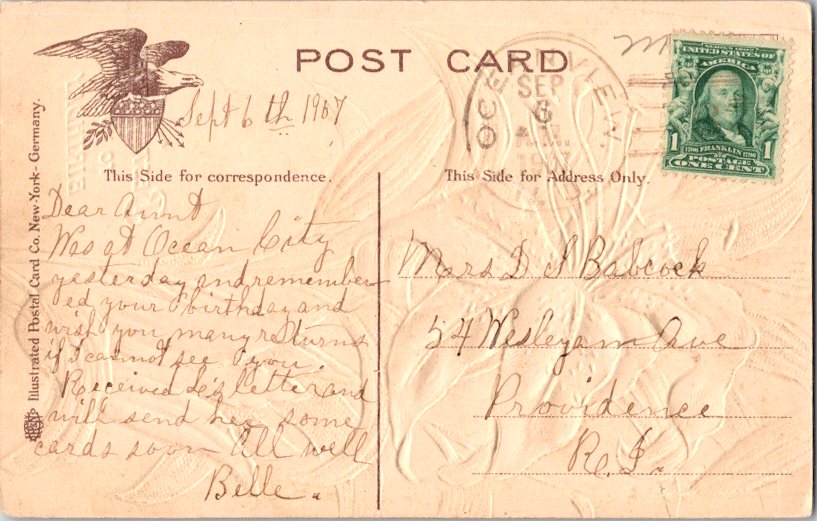 POST CARD
Sept 6th 1907
This Side for correspondence.
Dear Aunt
Was at Ocean City
yesterday and remember
ed your birthday and
wish you many returns
if I cannot see you.
Received letter and
will send her some
cards soon All well
Belle.
Illustrated Postal Card Co. New-York - Germany.
This Side for Address Only.
SEP
6
A.M.
SERIES 1902
UNITED STATES OF
AMERICA
1706 FRANKLIN 1790
1 POSTAGE 1
ONE CENT
Mrs D I Babcock
54 Wesleyan Ave
Providence
R.I.